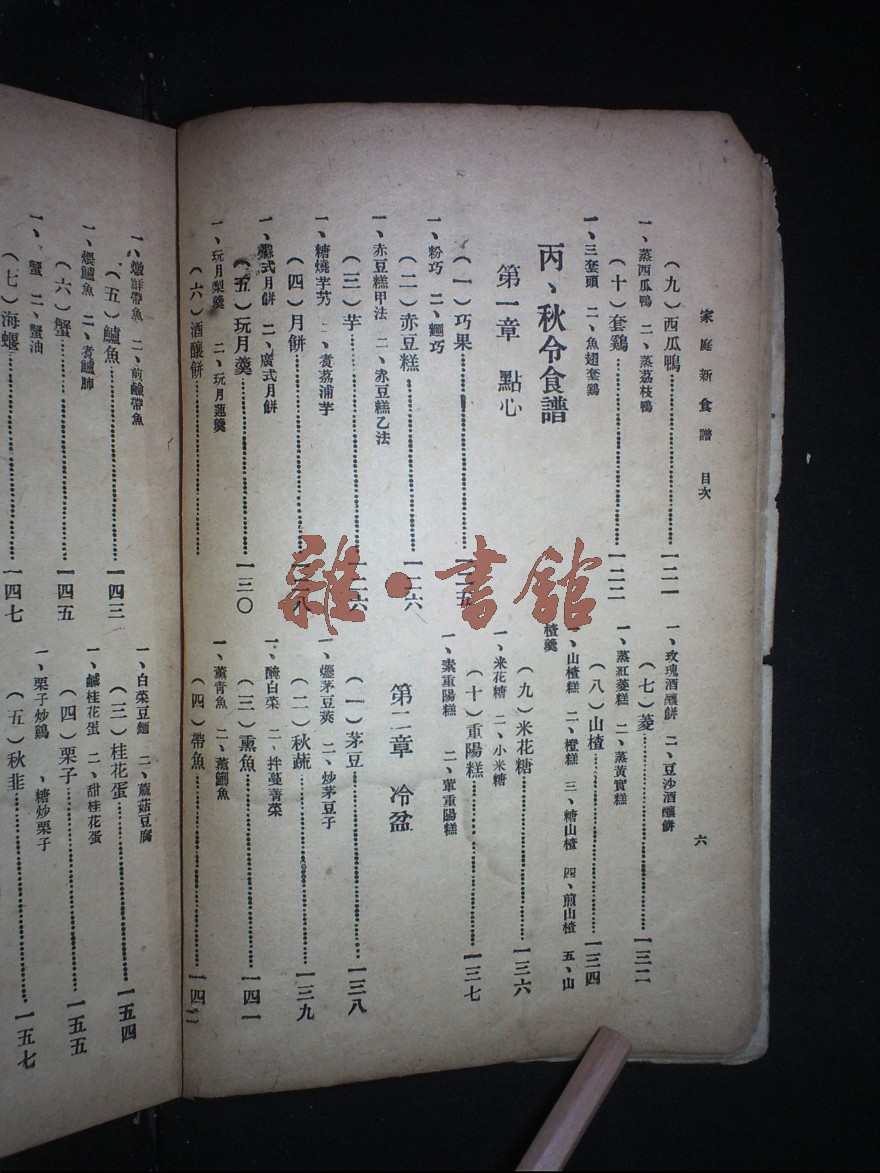 家庭新食譜 目次
六
（九）西瓜鴨……一二一
一、蒸西瓜鴨 二、蒸荔枝鴨
（十）套鷄……一二二
一、三套頭 二、魚翅套鷄
丙、秋令食譜
第一章 點心
（一）巧果……一二五
一、粉巧 二、麵巧
（二）赤豆糕……一二六
一、赤豆糕甲法 二、赤豆糕乙法
（三）芋……一二六
一、糖燒芋艿 二、煑荔浦芋
（四）月餅……一二八
一、蘇式月餅 二、廣式月餅
（五）玩月羹……一三〇
一、玩月梨羹 二、玩月蓮羹
（六）酒釀餅……
一、玫瑰酒釀餅 二、豆沙酒釀餅
（七）菱……一三二
一、蒸紅菱糕 二、蒸黃實糕
（八）山楂……一三四
一、山楂糕 二、橙糕 三、糖山楂 四、煎山楂 五、山
楂羹
（九）米花糖……一三六
一、米花糖 二、小米糖
（十）重陽糕……一三七
一、素重陽糕 二、葷重陽糕
第二章 冷盆
（一）茅豆……一三八
一、爊茅豆莢 二、炒茅豆子
（二）秋蔬……一三九
一、醃白菜 二、拌蔓菁菜
（三）熏魚……一四一
一、薰青魚 二、薰鯽魚
（四）帶魚……一四二
一、燉鮮帶魚 二、煎鹹帶魚
（五）鱸魚……一四三
一、煨鱸魚 二、煑鱸肺
（六）蟹……一四五
一、蟹 二、蟹油
（七）海蝘……一四七
一、白菜豆麵 二、蘑菇豆腐
（三）桂花蛋……一五四
一、鹹桂花蛋 二、甜桂花蛋
（四）栗子……一五五
一、栗子炒鷄 、糖炒栗子
（五）秋韭……一五七
雜·書館